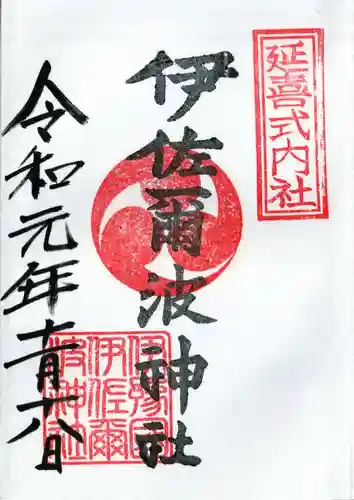 延喜式内社
伊佐爾波神社
伊豫国
伊佐爾
波神社
令和元年十一月十八日